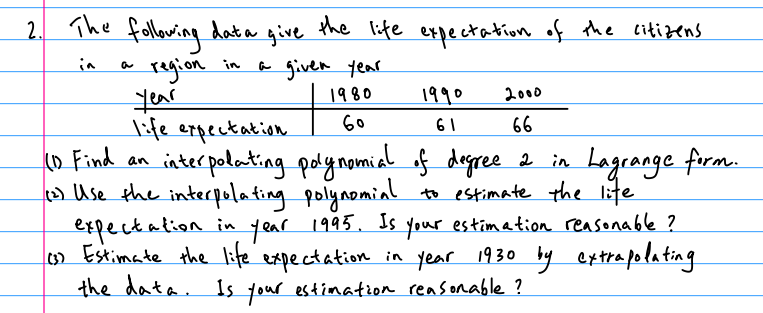 2. The following data give the life expectation of the citizens
in a region in a given year
year 1980 1990 2000
life expectation 60 61 66
(1) Find an interpolating polynomial of degree 2 in Lagrange form.
(2) Use the interpolating polynomial to estimate the life
expectation in year 1995. Is your estimation reasonable?
(3) Estimate the life expectation in year 1930 by extrapolating
the data. Is your estimation reasonable?